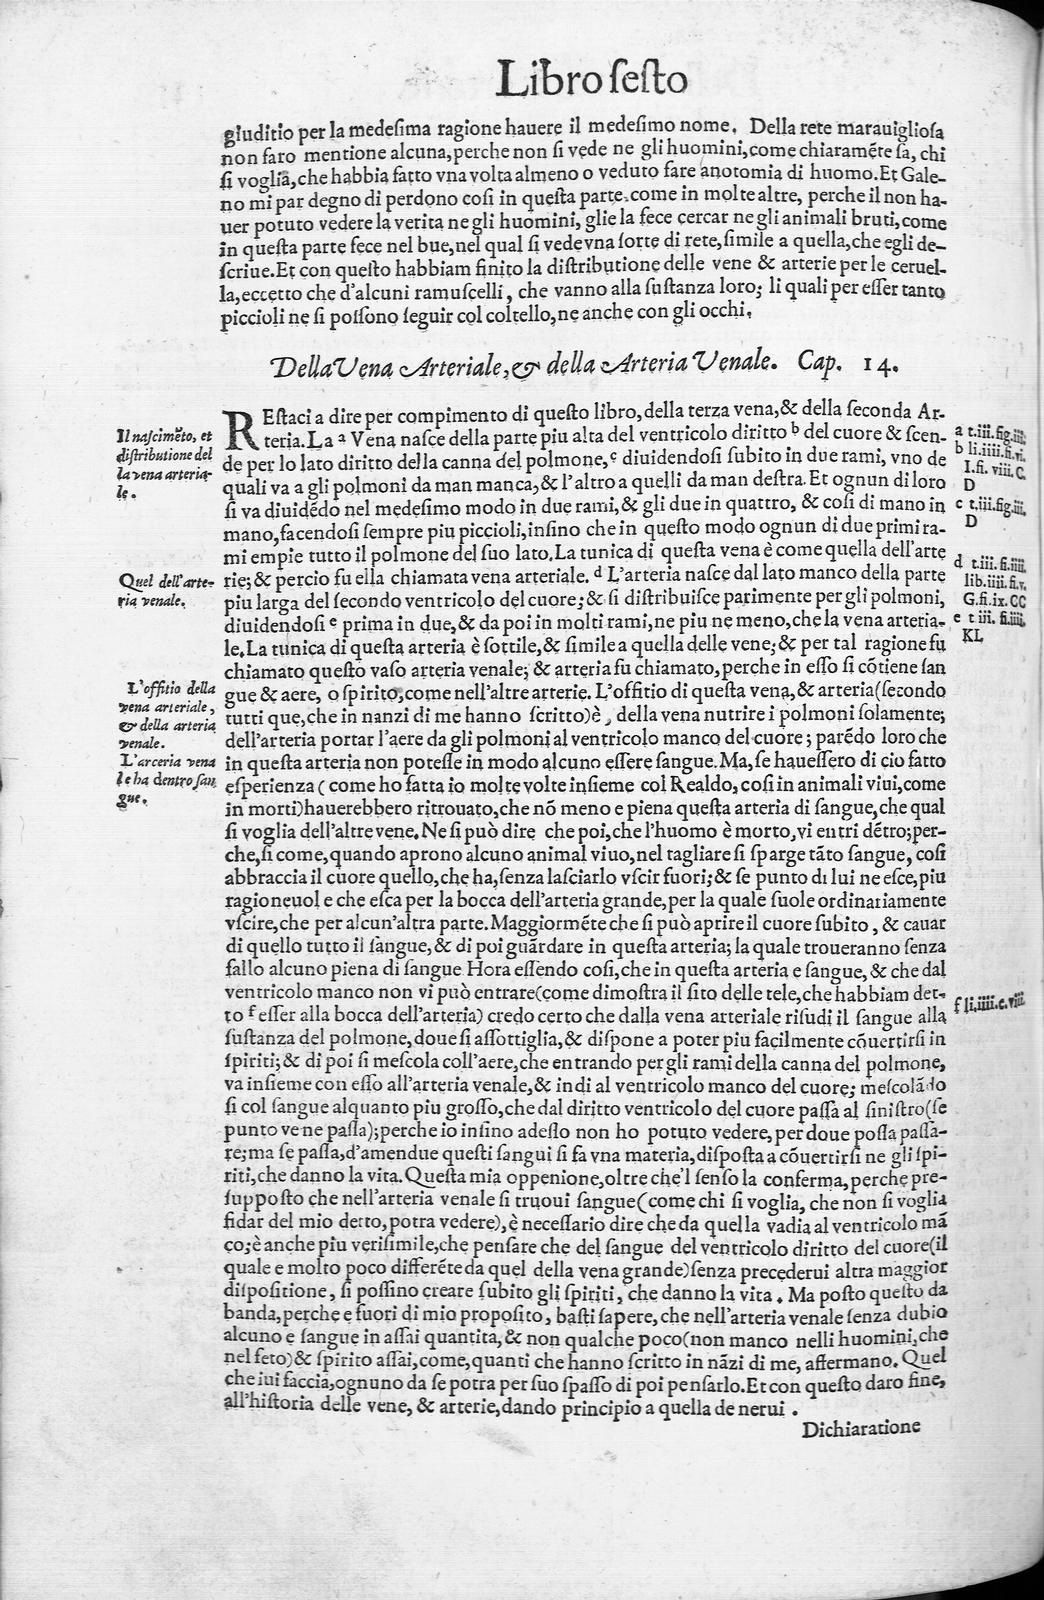 Libro ſeſto
giuditio per la medeſima ragione hauere il medeſimo nome. Della rete marauiglioſa
non faro mentione alcuna, perche non ſi vede ne gli huomini, come chiaramēte ſa, chi
ſi voglia, che habbia fatto vna volta almeno o veduto fare anotomia di huomo. Et Gale-
no mi par degno di perdono coſi in queſta parte, come in molte altre, perche il non ha-
uer potuto vedere la verita ne gli huomini, glie la fece cercar ne gli animali bruti, come
in queſta parte fece nel bue, nel qual ſi vede vna ſorte di rete, ſimile a quella, che egli de-
ſcriue. Et con queſto habbiam finito la diſtributione delle vene & arterie per le ceruel-
la, eccetto che d'alcuni ramuſcelli, che vanno alla ſuſtanza loro; li quali per eſſer tanto
piccioli ne ſi poſſono ſeguir col coltello, ne anche con gli occhi.
Della Vena Arteriale, & della Arteria Venale. Cap. 14.
REſtaci a dire per compimento di queſto libro, della terza vena, & della ſeconda Ar-
teria. La a Vena naſce della parte piu alta del ventricolo diritto b del cuore & ſcen-
de per lo lato diritto della canna del polmone, c diuidendoſi ſubito in due rami, vno de
quali va a gli polmoni da man manca, & l'altro a quelli da man deſtra. Et ognun di loro
ſi va diuidēdo nel medeſimo modo in due rami, & gli due in quattro, & coſi di mano in
mano, facendoſi ſempre piu piccioli, inſino che in queſto modo ognun di due primi ra-
mi empie tutto il polmone del ſuo lato. La tunica di queſta vena è come quella dell'arte
rie; & percio fu ella chiamata vena arteriale. d L'arteria naſce dal lato manco della parte
piu larga del ſecondo ventricolo del cuore; & ſi diſtribuiſce parimente per gli polmoni,
diuidendoſi e prima in due, & da poi in molti rami, ne piu ne meno, che la vena arteria-
le. La tunica di queſta arteria è ſottile, & ſimile a quella delle vene; & per tal ragione fu
chiamato queſto vaſo arteria venale; & arteria fu chiamato, perche in eſſo ſi cōtiene ſan
gue & aere, o ſpirito, come nell'altre arterie. L'offitio di queſta vena, & arteria (ſecondo
tutti que, che in nanzi di me hanno ſcritto) è, della vena nutrire i polmoni ſolamente;
dell'arteria portar l'aere da gli polmoni al ventricolo manco del cuore; parēdo loro che
in queſta arteria non poteſſe in modo alcuno eſſere ſangue. Ma, ſe haueſſero di cio fatto
eſperienza (come ho fatta io molte volte inſieme col Realdo, coſi in animali viui, come
in morti) hauerebbero ritrouato, che nō meno e piena queſta arteria di ſangue, che qual
ſi voglia dell'altre vene. Ne ſi può dire che poi, che l'huomo è morto, vi entri dētro; per-
che, ſi come, quando aprono alcuno animal viuo, nel tagliare ſi ſparge tāto ſangue, coſi
abbraccia il cuore quello, che ha, ſenza laſciarlo vſcir fuori; & ſe punto di lui ne eſce, piu
ragioneuole che eſca per la bocca dell'arteria grande, per la quale ſuole ordinariamente
vſcire, che per alcun'altra parte. Maggiormēte che ſi può aprire il cuore ſubito, & cauar
di quello tutto il ſangue, & di poi guārdare in queſta arteria; la quale troueranno ſenza
fallo alcuno piena di ſangue Hora eſſendo coſi, che in queſta arteria e ſangue, & che dal
ventricolo manco non vi può entrare (come dimoſtra il ſito delle tele, che habbiam det-
to f eſſer alla bocca dell'arteria) credo certo che dalla vena arteriale riſudi il ſangue alla
ſuſtanza del polmone, doue ſi aſſottiglia, & diſpone a poter piu facilmente cōuertirſi in
ſpiriti; & di poi ſi meſcola coll'aere, che entrando per gli rami della canna del polmone,
va inſieme con eſſo all'arteria venale, & indi al ventricolo manco del cuore; meſcolādo
ſi col ſangue alquanto piu groſſo, che dal diritto ventricolo del cuore paſſa al ſiniſtro (ſe
punto ve ne paſſa); perche io inſino adeſſo non ho potuto vedere, per doue poſſa paſſa-
re; ma ſe paſſa, d'amendue queſti ſangui ſi fa vna materia, diſpoſta a cōuertirſi ne gli ſpi-
riti, che danno la vita. Queſta mia oppenione, oltre che'l ſenſo la conferma, perche pre-
ſuppoſto che nell'arteria venale ſi truoui ſangue (come chi ſi voglia, che non ſi voglia
fidar del mio detto, potra vedere), è neceſſario dire che da quella vadia al ventricolo mā
co; è anche piu veriſimile, che penſare che del ſangue del ventricolo diritto del cuore (il
quale e molto poco differēte da quel della vena grande) ſenza precederui altra maggior
diſpoſitione, ſi poſſino creare ſubito gli ſpiriti, che danno la vita. Ma poſto queſto da
banda, perche e fuori di mio propoſito, baſti ſapere, che nell'arteria venale ſenza dubio
alcuno e ſangue in aſſai quantita, & non qualche poco (non manco nelli huomini, che
nel feto) & ſpirito aſſai, come, quanti che hanno ſcritto in nāzi di me, affermano. Quel
che iui faccia, ognuno da ſe potra per ſuo ſpaſſo di poi penſarlo. Et con queſto daro fine,
all'hiſtoria delle vene, & arterie, dando principio a quella de nerui.
Dichiaratione
Il naſcimēto, et
diſtributione del
la vena arteria-
le.
Quel dell'arte-
ria venale.
L'offitio della
vena arteriale,
& della arteria
venale.
L'arceria vena
le ha dentro ſan
gue.
a t.iii.fig.iii.
b li.iiii.fi.vi.
I.fi. viii.C.
D
c t.iii.fig.iii.
D
d t.iii. fi.iiii.
lib.iiii. fi.v.
G.fi.ix. CC
e t iii. fi.iiii.
KL
f li.iiii.c.viii.